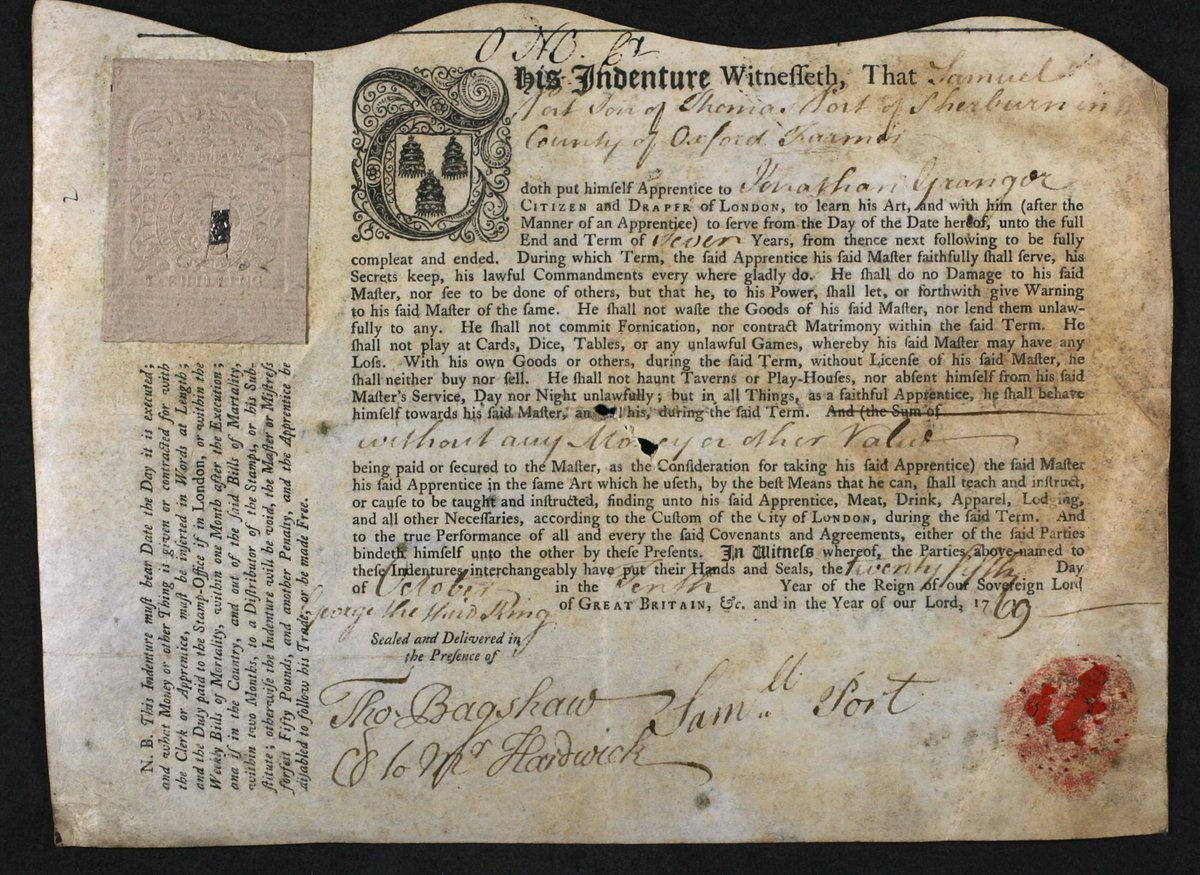 his Indenture Witneſſeth, That Samuel
Port Son of Thomas Port of Sherburn in
County of Oxford Farmer
doth put himſelf Apprentice to Jonathan Granger
CITIZEN and DRAPER of LONDON, to learn his Art, and with him (after the
Manner of an Apprentice) to ſerve from the Day of the Date hereof, unto the full
End and Term of Seven Years, from thence next following to be fully
compleat and ended. During which Term, the ſaid Apprentice his ſaid Maſter faithfully ſhall ſerve, his
Secrets keep, his lawful Commandments every where gladly do. He ſhall do no Damage to his ſaid
Maſter, nor ſee to be done of others, but that he, to his Power, ſhall let, or forthwith give Warning
to his ſaid Maſter of the ſame. He ſhall not waſte the Goods of his ſaid Maſter, nor lend them unlaw-
fully to any. He ſhall not commit Fornication, nor contract Matrimony within the ſaid Term. He
ſhall not play at Cards, Dice, Tables, or any unlawful Games, whereby his ſaid Maſter may have any
Loſs. With his own Goods or others, during the ſaid Term, without License of his ſaid Maſter, he
ſhall neither buy nor ſell. He ſhall not haunt Taverns or Play-Houſes, nor abſent himſelf from his ſaid
Maſter's Service, Day nor Night unlawfully; but in all Things, as a faithful Apprentice, he ſhall behave
himſelf towards his ſaid Maſter, an all his, during the ſaid Term. And (the Sum of
without any Money or other Value
being paid or ſecured to the Maſter, as the Conſideration for taking his ſaid Apprentice) the ſaid Maſter
his ſaid Apprentice in the ſame Art which he uſeth, by the beſt Means that he can, ſhall teach and inſtruct,
or cauſe to be taught and inſtructed, finding unto his ſaid Apprentice, Meat, Drink, Apparel, Lodging,
and all other Neceſſaries, according to the Cuſtom of the City of LONDON, during the ſaid Term. And
to the true Performance of all and every the ſaid Covenants and Agreements, either of the ſaid Parties
bindeth himſelf unto the other by theſe Preſents. In Witneſs whereof, the Parties above-named to
theſe Indentures interchangeably have put their Hands and Seals, the twenty fifth Day
of October in the Tenth Year of the Reign of our Sovereign Lord
George the third King of GREAT BRITAIN, &c. and in the Year of our Lord, 1769
Sealed and Delivered in
the Preſence of
Tho. Bagshaw
Samll Port
Cl to Mr Hardwick
N. B. This Indenture muſt bear Date the Day it is executed;
and what Money or other Thing is given or contracted for with
the Clerk or Apprentice, muſt be inſerted in Words at Length;
and the Duty paid to the Stamp-Office if in London, or within the
Weekly Bills of Mortality, within one Month after the Execution;
and if in the Country, and out of the ſaid Bills of Martality,
within two Months, to a Diſtributor of the Stamps, or his Sub-
ſtitute; otherwiſe the Indenture will be void, the Maſter or Miſtreſs
forfeit Fifty Pounds, and another Penalty, and the Apprentice be
diſabled to follow his Trade, or be made Free.